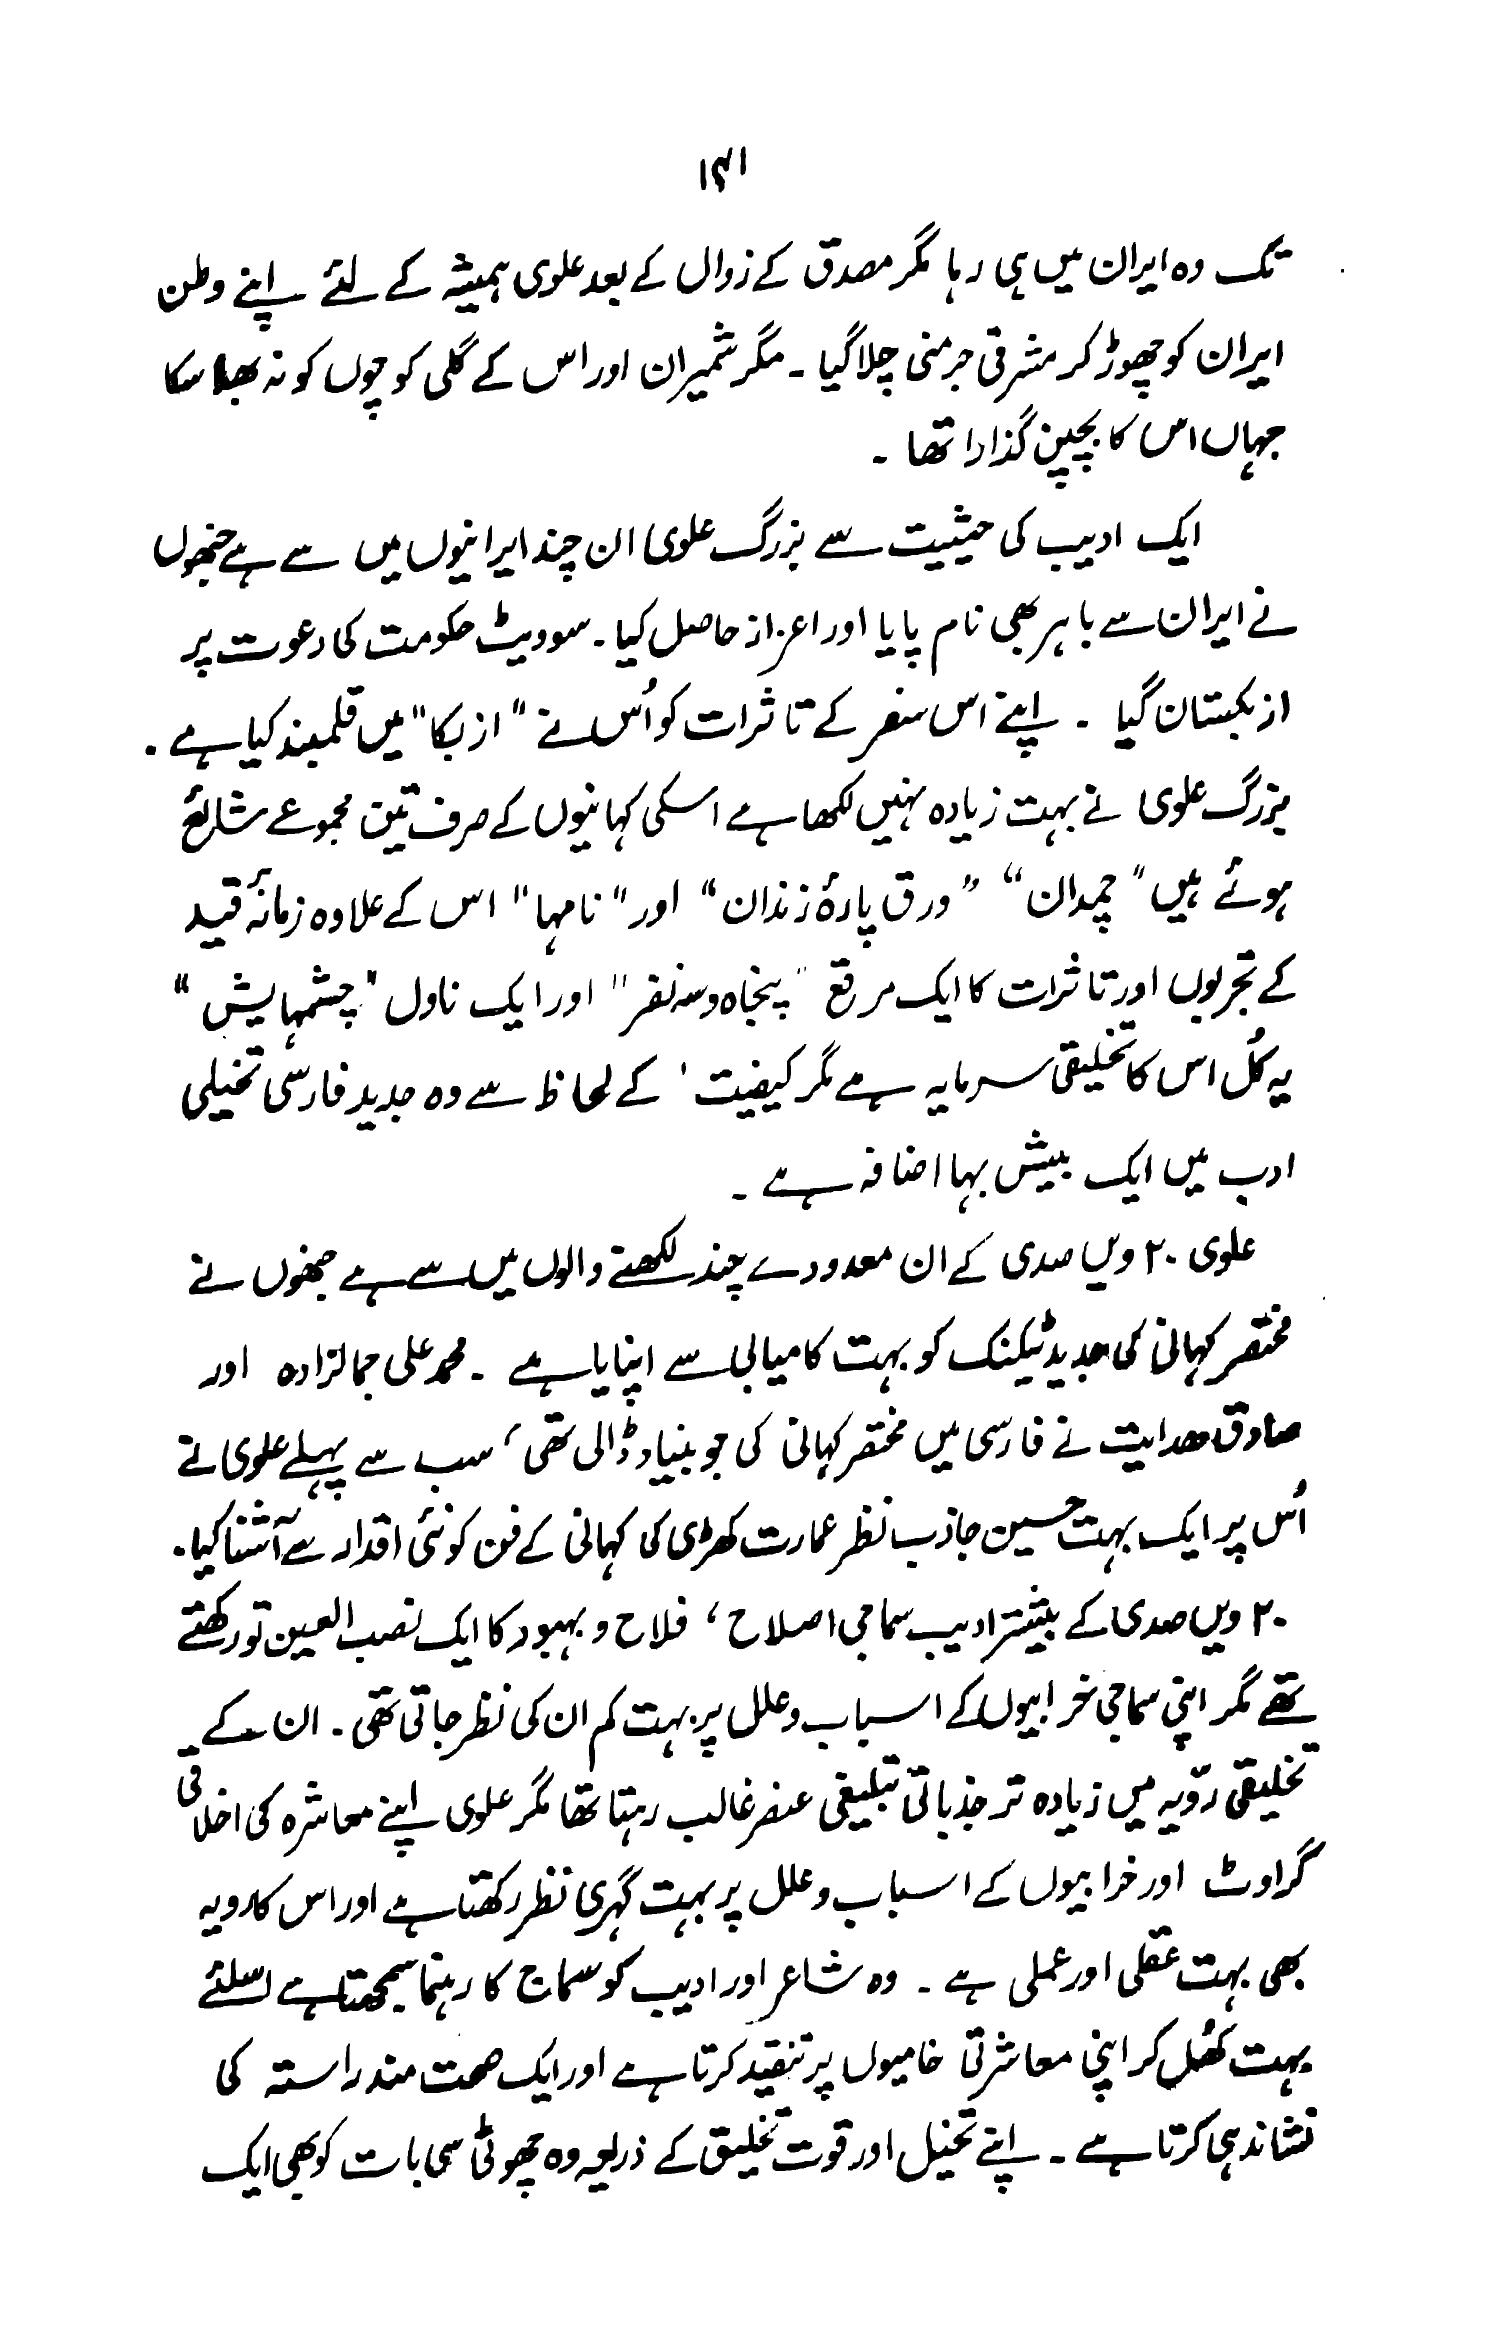 ۱۴۱
تک وہ ایران میں ہی رہا مگر مصدق کے زوال کے بعد علوی ہمیشہ کے لئے اپنے وطن
ایران کو چھوڑ کر مشرقی جرمنی چلا گیا ۔ مگر شمیران اور اس کے گلی کوچوں کو نہ بھلا سکا
جہاں اس کا بچپن گذارا تھا ۔
ایک ادیب کی حیثیت سے بزرگ علوی ان چند ایرانیوں میں سے ہے جنھوں
نے ایران سے باہر بھی نام پایا اور اعزاز حاصل کیا ۔ سوویٹ حکومت کی دعوت پر
ازبکستان گیا ۔ اپنے اس سفر کے تاثرات کو اُس نے "ازبکا" میں قلمبند کیا ہے ۔
بزرگ علوی نے بہت زیادہ نہیں لکھا ہے اسکی کہانیوں کے صرف تین مجموعے شائع
ہوئے ہیں "چمدان" "ورق پارۂ زندان" اور "نامہا" اس کے علاوہ زمانۂ قید
کے تجربوں اور تاثرات کا ایک مرقع "پنجاہ و سہ نفر" اور ایک ناول "چشمہایش"
یہ کُل اس کا تخلیقی سرمایہ ہے مگر کیفیت ' کے لحاظ سے وہ جدید فارسی تخیلی
ادب میں ایک بیش بہا اضافہ ہے ۔
علوی ۲۰ ویں صدی کے ان معدودے چند لکھنے والوں میں سے ہے جنھوں نے
مختصر کہانی کی جدید ٹیکنک کو بہت کامیابی سے اپنایا ہے ۔ محمد علی جمالزادہ اور
صادق ھدایت نے فارسی میں مختصر کہانی کی جو بنیاد ڈالی تھی ، سب سے پہلے علوی نے
اُس پر ایک بہت حسین جاذب نظر عمارت کھڑی کی کہانی کے فن کو نئی اقدار سے آشنا کیا ۔
۲۰ ویں صدی کے بیشتر ادیب سماجی اصلاح ، فلاح و بہبود کا ایک نصب العین تو رکھتے
تھے مگر اپنی سماجی خرابیوں کے اسباب و علل پر بہت کم ان کی نظر جاتی تھی ۔ ان کے
تخلیقی رویّہ میں زیادہ تر جذباتی تبلیغی عنصر غالب رہتا تھا مگر علوی اپنے معاشرہ کی اخلاقی
گراوٹ اور خرابیوں کے اسباب و علل پر بہت گہری نظر رکھتا ہے اور اس کا رویہ
بھی بہت عقلی اور عملی ہے ۔ وہ شاعر اور ادیب کو سماج کا رہنما سمجھتا ہے اسلئے
بہت کھُل کر اپنی معاشرتی خامیوں پر تنقید کرتا ہے اور ایک صحت مند راستہ کی
نشاندہی کرتا ہے ۔ اپنے تخیل اور قوت تخلیق کے ذریعہ وہ چھوٹی سی بات کو بھی ایک